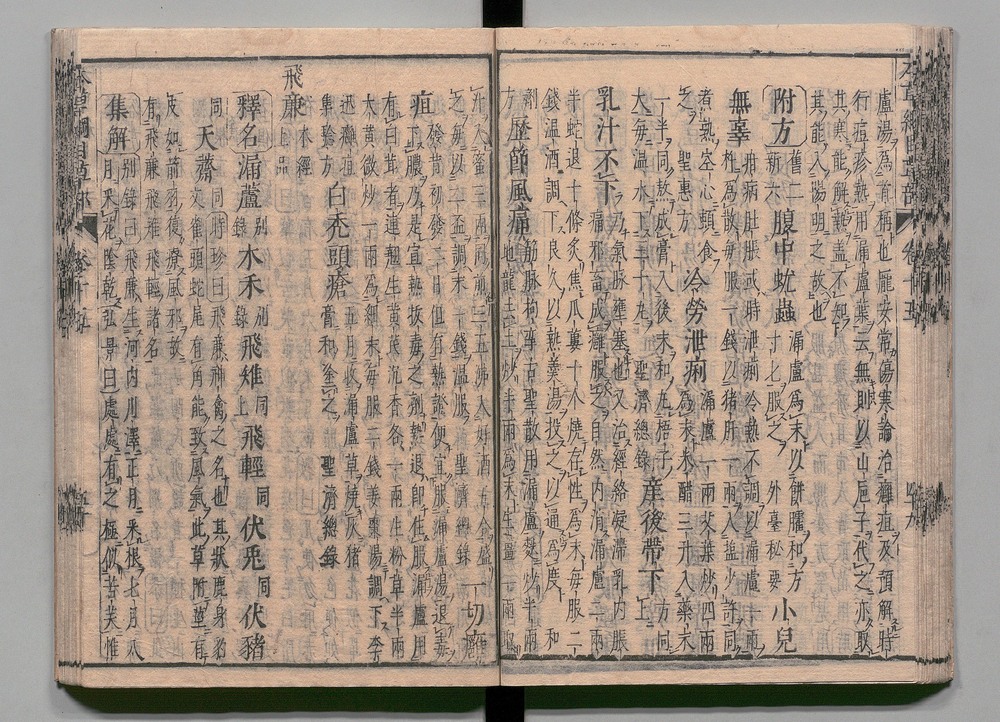 盧湯為首稱也龐安常傷寒論治癰疽及預解時
行痘疹熱用漏盧葉云無則以山巵子代之亦取
其寒能解熱蓋不知
其能入陽明之故也
附方 舊二 新六 腹中蚘蟲 漏盧為末以餅臛和方寸匕服之 外臺秘要 小兒
無辜 疳病肚脹或時泄痢冷熱不調以漏盧一兩
杵為散每服一錢以猪肝一兩入塩少許同
煮熟空心頓食 聖惠方 冷勞泄痢 漏盧一兩艾葉炒四兩
為末米醋三升入藥末
一半同熬成膏入後末和丸梧子
大每溫水下三十丸 聖濟總錄 產後帶下 方同上
乳汁不下 乃氣脉壅塞也又治經絡凝滯乳内脹
痛邪畜成癰服之自然内消漏盧二兩
半蛇退十條炙焦瓜蔞十个燒存性為末每服二
錢溫酒調下良久以熱羹湯投之以通為度 和
劑方 歷節風痛 筋脉拘攣古聖散用漏盧麩炒半兩
地龍去土炒半兩為末生薑二兩取
汁入蜜三兩同煎三五沸入好酒五合盛
之每以三盃調末一錢溫服 聖濟總錄 一切癰
疽 發背初發二日但有熱證便宜服漏盧湯退毒
下膿乃是宜熱拔毒之劑熱退即住服漏盧用
有白茸者連翹生黃茋沉香各一兩生粉草半兩
大黃微炒一兩為細末每服二錢姜棗湯調下 李
迅癰疽
集驗方 白禿頭瘡 五月收漏盧草燒灰猪
膏和塗之 聖濟總錄
飛廉 本經上品
釋名 漏蘆 別錄 木禾 別錄 飛雉 同上 飛輕 同 伏兎 同 伏豬
同 天薺 同 時珍曰飛廉神禽之名也其狀鹿身豹
文雀頭蛇尾有角能致風氣此草附莖有
皮如箭羽復療風邪故
有飛廉飛雉飛輕諸名
集解 別錄曰飛廉生河内川澤正月采根七月八
月采花陰乾弘景曰處處有之極似苦芺惟